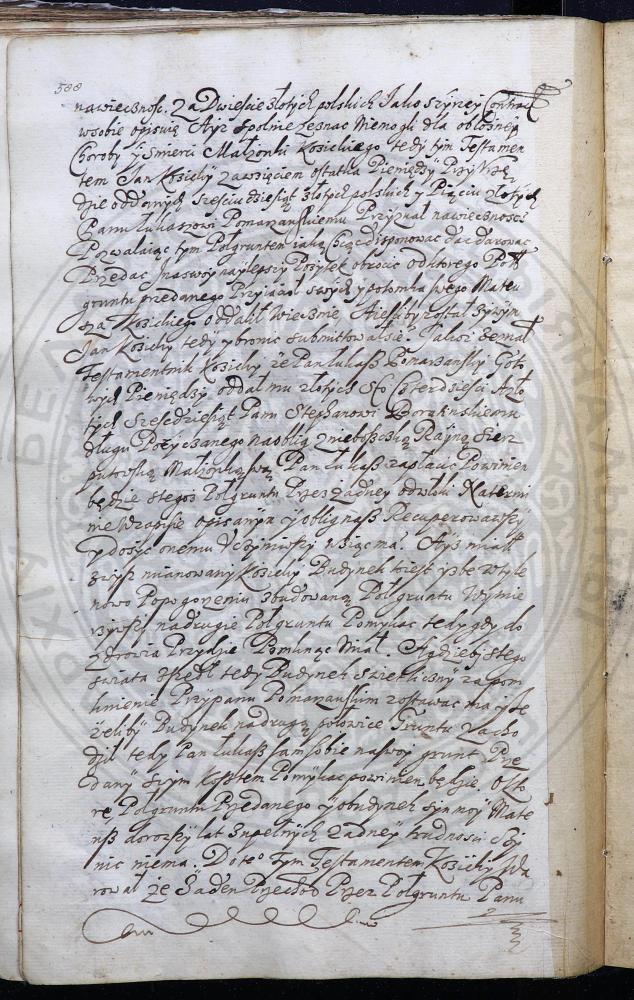 588
na wiecznosc. Za Dwiescie złotych polskich Jako szyrzey Contract
wsobie opisuię Atysz spolnie zeznac Niemogli dla obłozney
Choroby y Smierci Małzonki Kosickiego tedy tym Testamen
tem Jan Kosicky zawzięciem ostatka Pieniędzy Przy Vrzę
dzie oddonych szesciudziesiąt złotych polskich y Pięciu złotych
Panu Łukaszowi Pomarzanskiemu Przyznał na wiecznosc
Pozwalaiąc tym Połgruntem iako chcąc disponowac dac darowac
Przedac y na swoy naylepszy Pozytek obrocic od ktorego Poł
gruntu przedanego Przyiacioł swych y potomka swego Mateu
sza Kosickiego oddalił wiecznie, A ieslby został zywym
Jan Kosicky tedy y bronic submittował sie. Jakosz zeznał
Testamentnik Kosicky że Pan Łukasz Pomarzansky Goto
wych Pieniędzy oddał mu złotych sto Czterdziesci A zło
tych szescdziesiąt Panu Stephanowi
długu Pozyczanego na oblig z nieboszczką Rainą
Małzonką swą Pan Łukasz zapłacic Powinien
będzie z tegosz Połgruntu Przez żadney odwłoki Na termi
nie w zapisie opisanym y oblig nasz Recuperowawszy
y dosyc onemu Vczyniwszy wsiąc ma. Atysz miał
zwysz mianowany Kosicky Budynek to iest yzbe w tyle
nowo Po pogorzeniu zbudowaną Połgruntu
na drugie Połgruntu Pomykac tedy gdy do
zdrowia Przydzie Pomknąc Miał. A gdzieby z tego
swiata zszedł tedy Budynek
Przy panu Pomarzanskim zostawac ma y Je
żeliby Budynek na drugą połowice Gruntu zacho
dził tedy Pan Łukasz sam sobie na swoy grunt Prze
dany swym Kosztem Pomykac powinien będzie. O kto
re Połgruntu Przedanego y o budynek syn moy Mate
usz dorozszy lat zupełnych żadney trudnosci czy
nic niema. Do te° tym Testamentem Kosicky wa
rował że Żaden Przechod Przez Połgruntu Panu